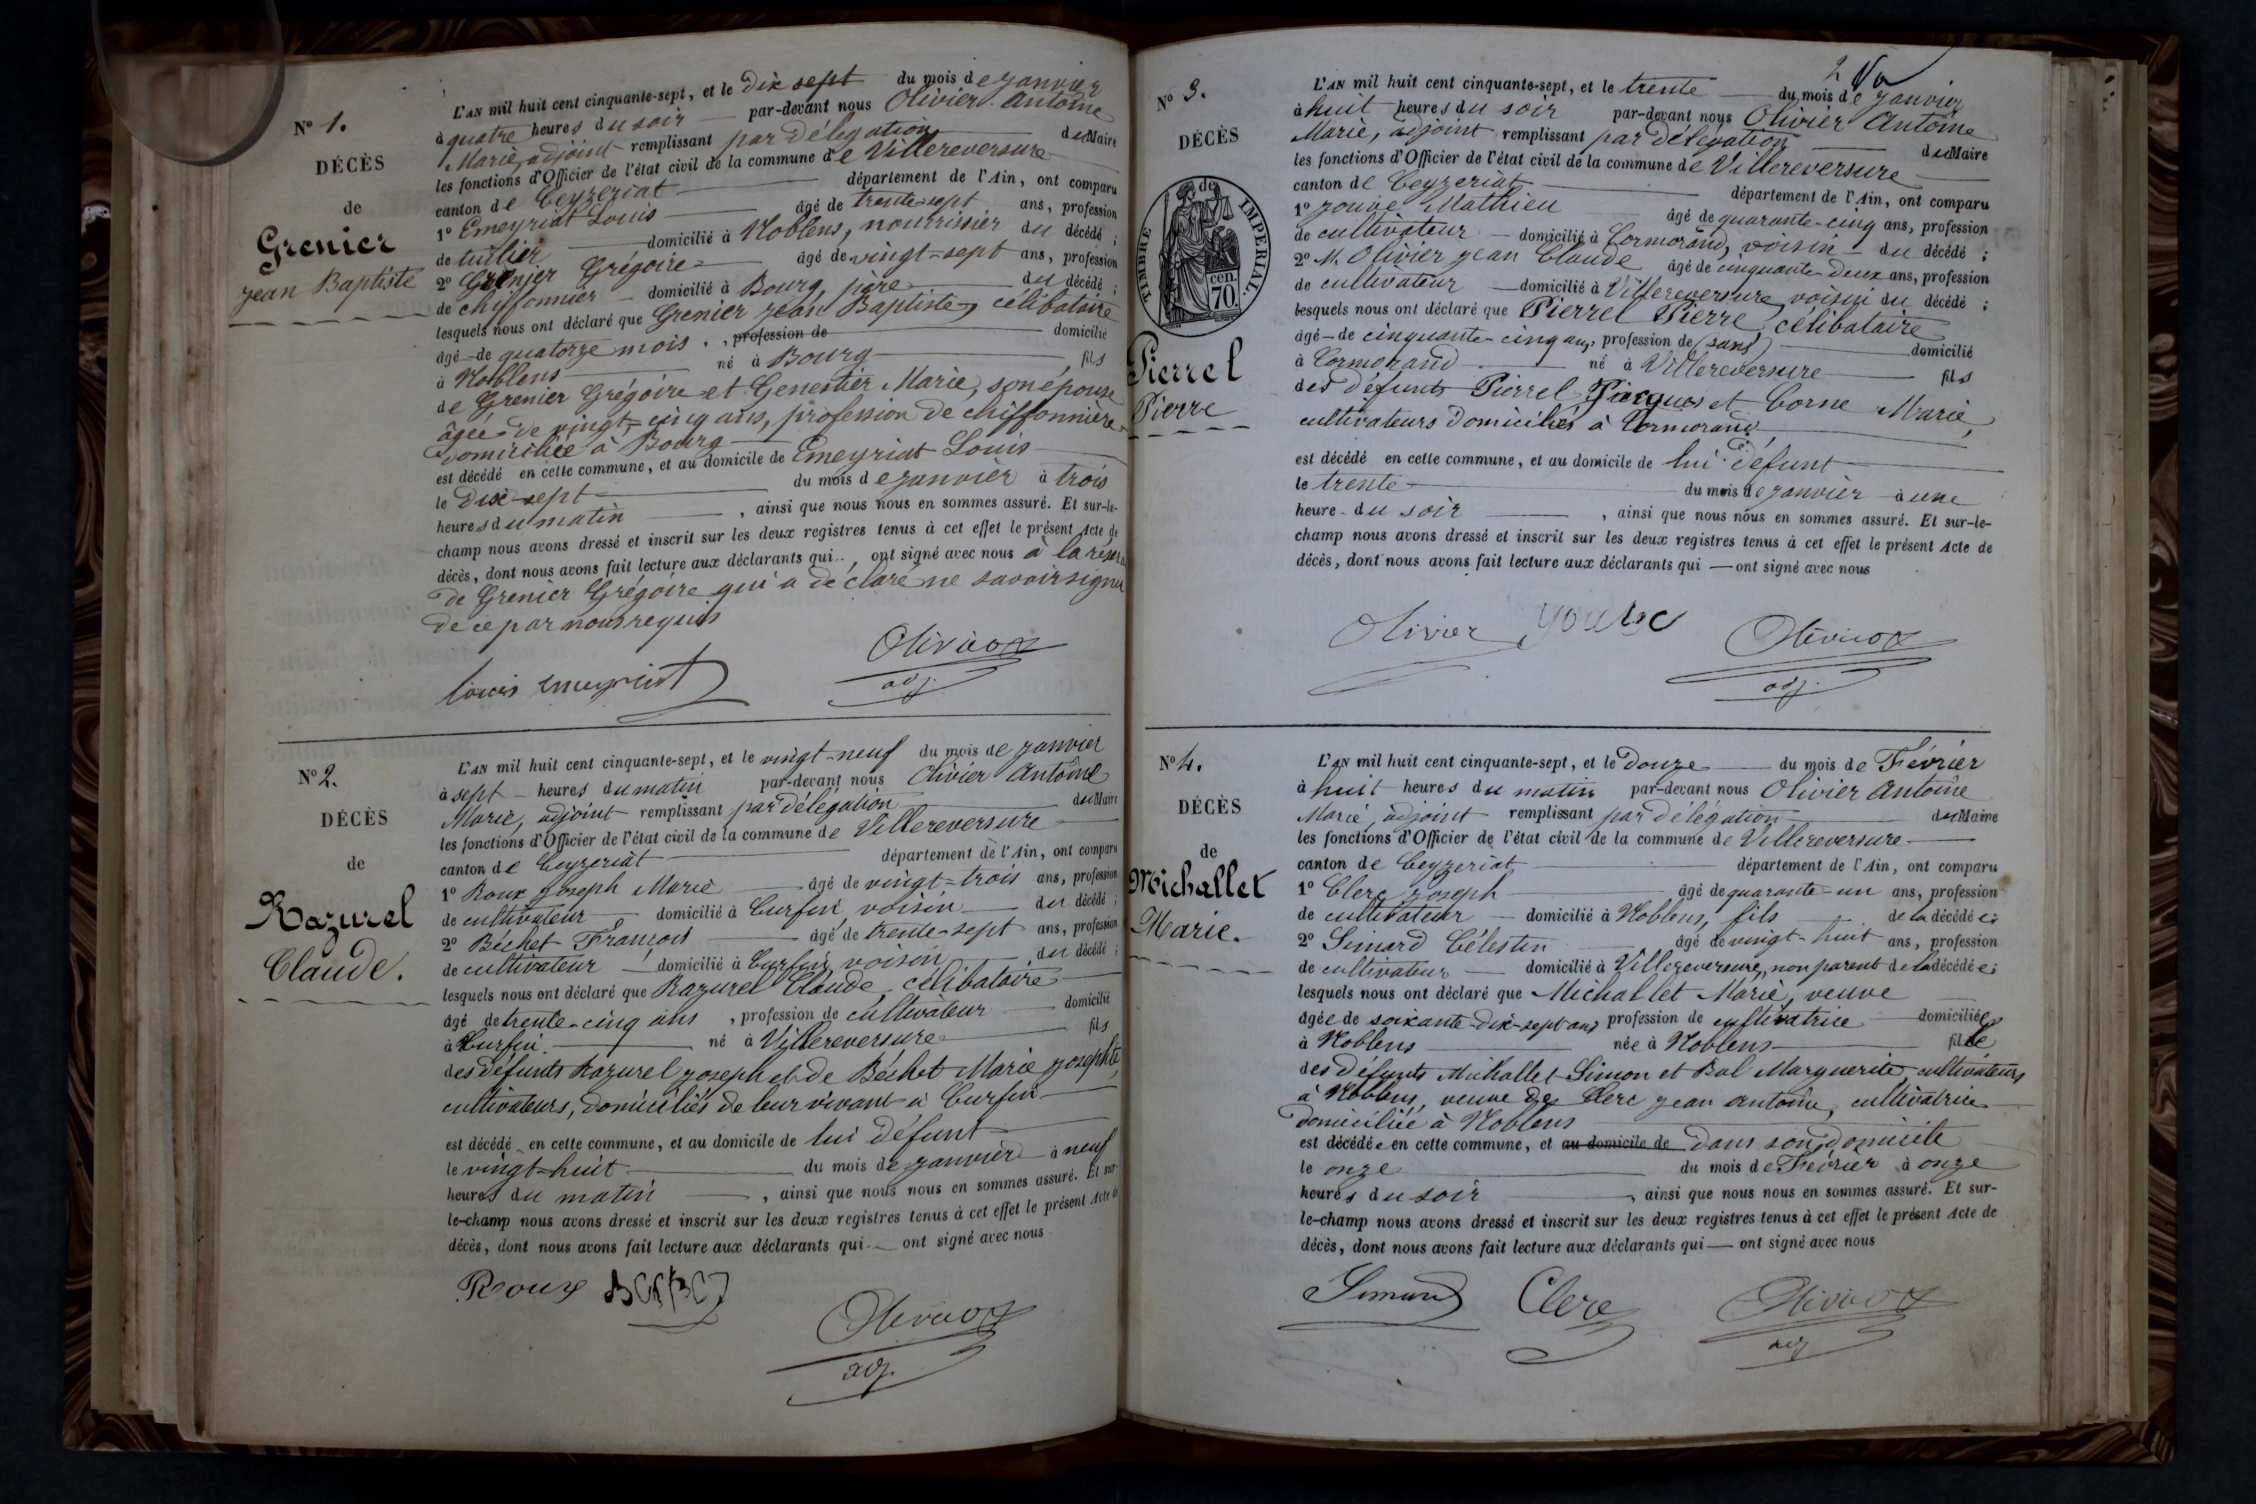 Nº 1.
DÉCÈS
de
Grenier
Jean Baptiste
L'AN mil huit cent cinquante-sept, et le Dix sept du mois de janvier
à quatre heures du soir par-devant nous Olivier Antoine
Marie, adjoint remplissant par Délégation du Maire
les fonctions d'Officier de l'état civil de la commune de Villereversure
canton de Ceyzeriat département de l'Ain, ont comparu
1º Emeyriat Louis âgé de trente-sept ans, profession
de tuilier domicilié à Noblens, nourrissier du décédé ;
2º Grenier Grégoire âgé de vingt-sept ans, profession
de chiffonnier domicilié à Bourg, père du décédé ;
lesquels nous ont déclaré que Grenier Jean Baptiste, célibataire
âgé de quatorze mois, profession de domicilié
à Noblens né à Bourg fils
de Grenier Grégoire et Genestier Marie, son épouse
âgée de vingt-cinq ans, profession de chiffonnière
domiciliée à Bourg
est décédé en cette commune, et au domicile de Emeyriat Louis
le Dix-sept du mois de janvier à trois
heures du matin, ainsi que nous nous en sommes assuré. Et sur-le-
champ nous avons dressé et inscrit sur les deux registres tenus à cet effet le présent Acte de
décès, dont nous avons fait lecture aux déclarants qui ont signé avec nous à la réserve
de Grenier Grégoire qui a déclaré ne savoir signer
de ce par nous requis
Louis Emeyriat Olivier
adj.
Nº 2.
DÉCÈS
de
Razurel
Claude.
L'AN mil huit cent cinquante-sept, et le vingt-neuf du mois de janvier
à sept heures du matin par-devant nous Olivier Antoine
Marie, adjoint remplissant par délégation du Maire
les fonctions d'Officier de l'état civil de la commune de Villereversure
canton de Ceyzeriat département de l'Ain, ont comparu
1º Roux Joseph Marie âgé de vingt-trois ans, profession
de cultivateur domicilié à Curfin, voisin du décédé ;
2º Béchet François âgé de trente-sept ans, profession
de cultivateur domicilié à Curfin, voisin du décédé ;
lesquels nous ont déclaré que Razurel Claude, célibataire
âgé de trente-cinq ans, profession de cultivateur domicilié
à Curfin. né à Villereversure fils
des défunts Razurel Joseph et de Béchet Marie Josephte,
cultivateurs, domiciliés de leur vivant à Curfin
est décédé en cette commune, et au domicile de lui défunt
le vingt-huit du mois de janvier à neuf
heures du matin, ainsi que nous nous en sommes assuré. Et sur-
le-champ nous avons dressé et inscrit sur les deux registres tenus à cet effet le présent Acte de
décès, dont nous avons fait lecture aux déclarants qui ont signé avec nous
Roux
Olivier
adj.
2
Nº 3.
DÉCÈS
de
TIMBRE IMPERIAL
70. cen.
Pierrel
Pierre
L'AN mil huit cent cinquante-sept, et le trente du mois de janvier
à huit heures du soir par-devant nous Olivier Antoine
Marie, adjoint remplissant par délégation du Maire
les fonctions d'Officier de l'état civil de la commune de Villereversure
canton de Ceyzeriat département de l'Ain, ont comparu
1º Jouve Mathieu âgé de quarante-cinq ans, profession
de cultivateur domicilié à Cormorand, voisin du décédé ;
2º M. Olivier Jean Claude âgé de cinquante-deux ans, profession
de cultivateur domicilié à Villereversure, voisin du décédé ;
lesquels nous ont déclaré que Pierrel Pierre, célibataire
âgé de cinquante-cinq ans, profession de (sans) domicilié
à Cormorand né à Villereversure fils
des défunts Pierrel Jacques et Corne Marie,
cultivateurs domiciliés à Cormorand,
est décédé en cette commune, et au domicile de lui défunt
le trente du mois de janvier à une
heure du soir, ainsi que nous nous en sommes assuré. Et sur-le-
champ nous avons dressé et inscrit sur les deux registres tenus à cet effet le présent Acte de
décès, dont nous avons fait lecture aux déclarants qui ont signé avec nous
Olivier Olivier
adj.
Nº 4.
DÉCÈS
de
Michallet
Marie.
L'AN mil huit cent cinquante-sept, et le Douze du mois de Février
à huit heures du matin par-devant nous Olivier Antoine
Marie, adjoint remplissant par délégation du Maire
les fonctions d'Officier de l'état civil de la commune de Villereversure
canton de Ceyzeriat département de l'Ain, ont comparu
1º Clerc Joseph âgé de quarante-un ans, profession
de cultivateur domicilié à Noblens, fils de la décédée ;
2º Simard Célestin âgé de vingt-huit ans, profession
de cultivateur domicilié à Villereversure, non parent de la décédée ;
lesquels nous ont déclaré que Michallet Marie, veuve
âgée de soixante-dix-sept ans, profession de cultivatrice domiciliée
à Noblens née à Noblens fille
des défunts Michallet Simon et Bal Marguerite cultivateurs
à Noblens, veuve de Clerc Jean Antoine, cultivatrice
domiciliée à Noblens
est décédée en cette commune, et au domicile de Dans son domicile
le onze du mois de Février à onze
heures du soir, ainsi que nous nous en sommes assuré. Et sur-
le-champ nous avons dressé et inscrit sur les deux registres tenus à cet effet le présent Acte de
décès, dont nous avons fait lecture aux déclarants qui ont signé avec nous
Simard Clerc Olivier
adj